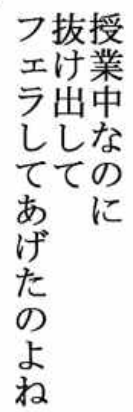 授業中なのに
抜け出して
フェラしてあげたのよね